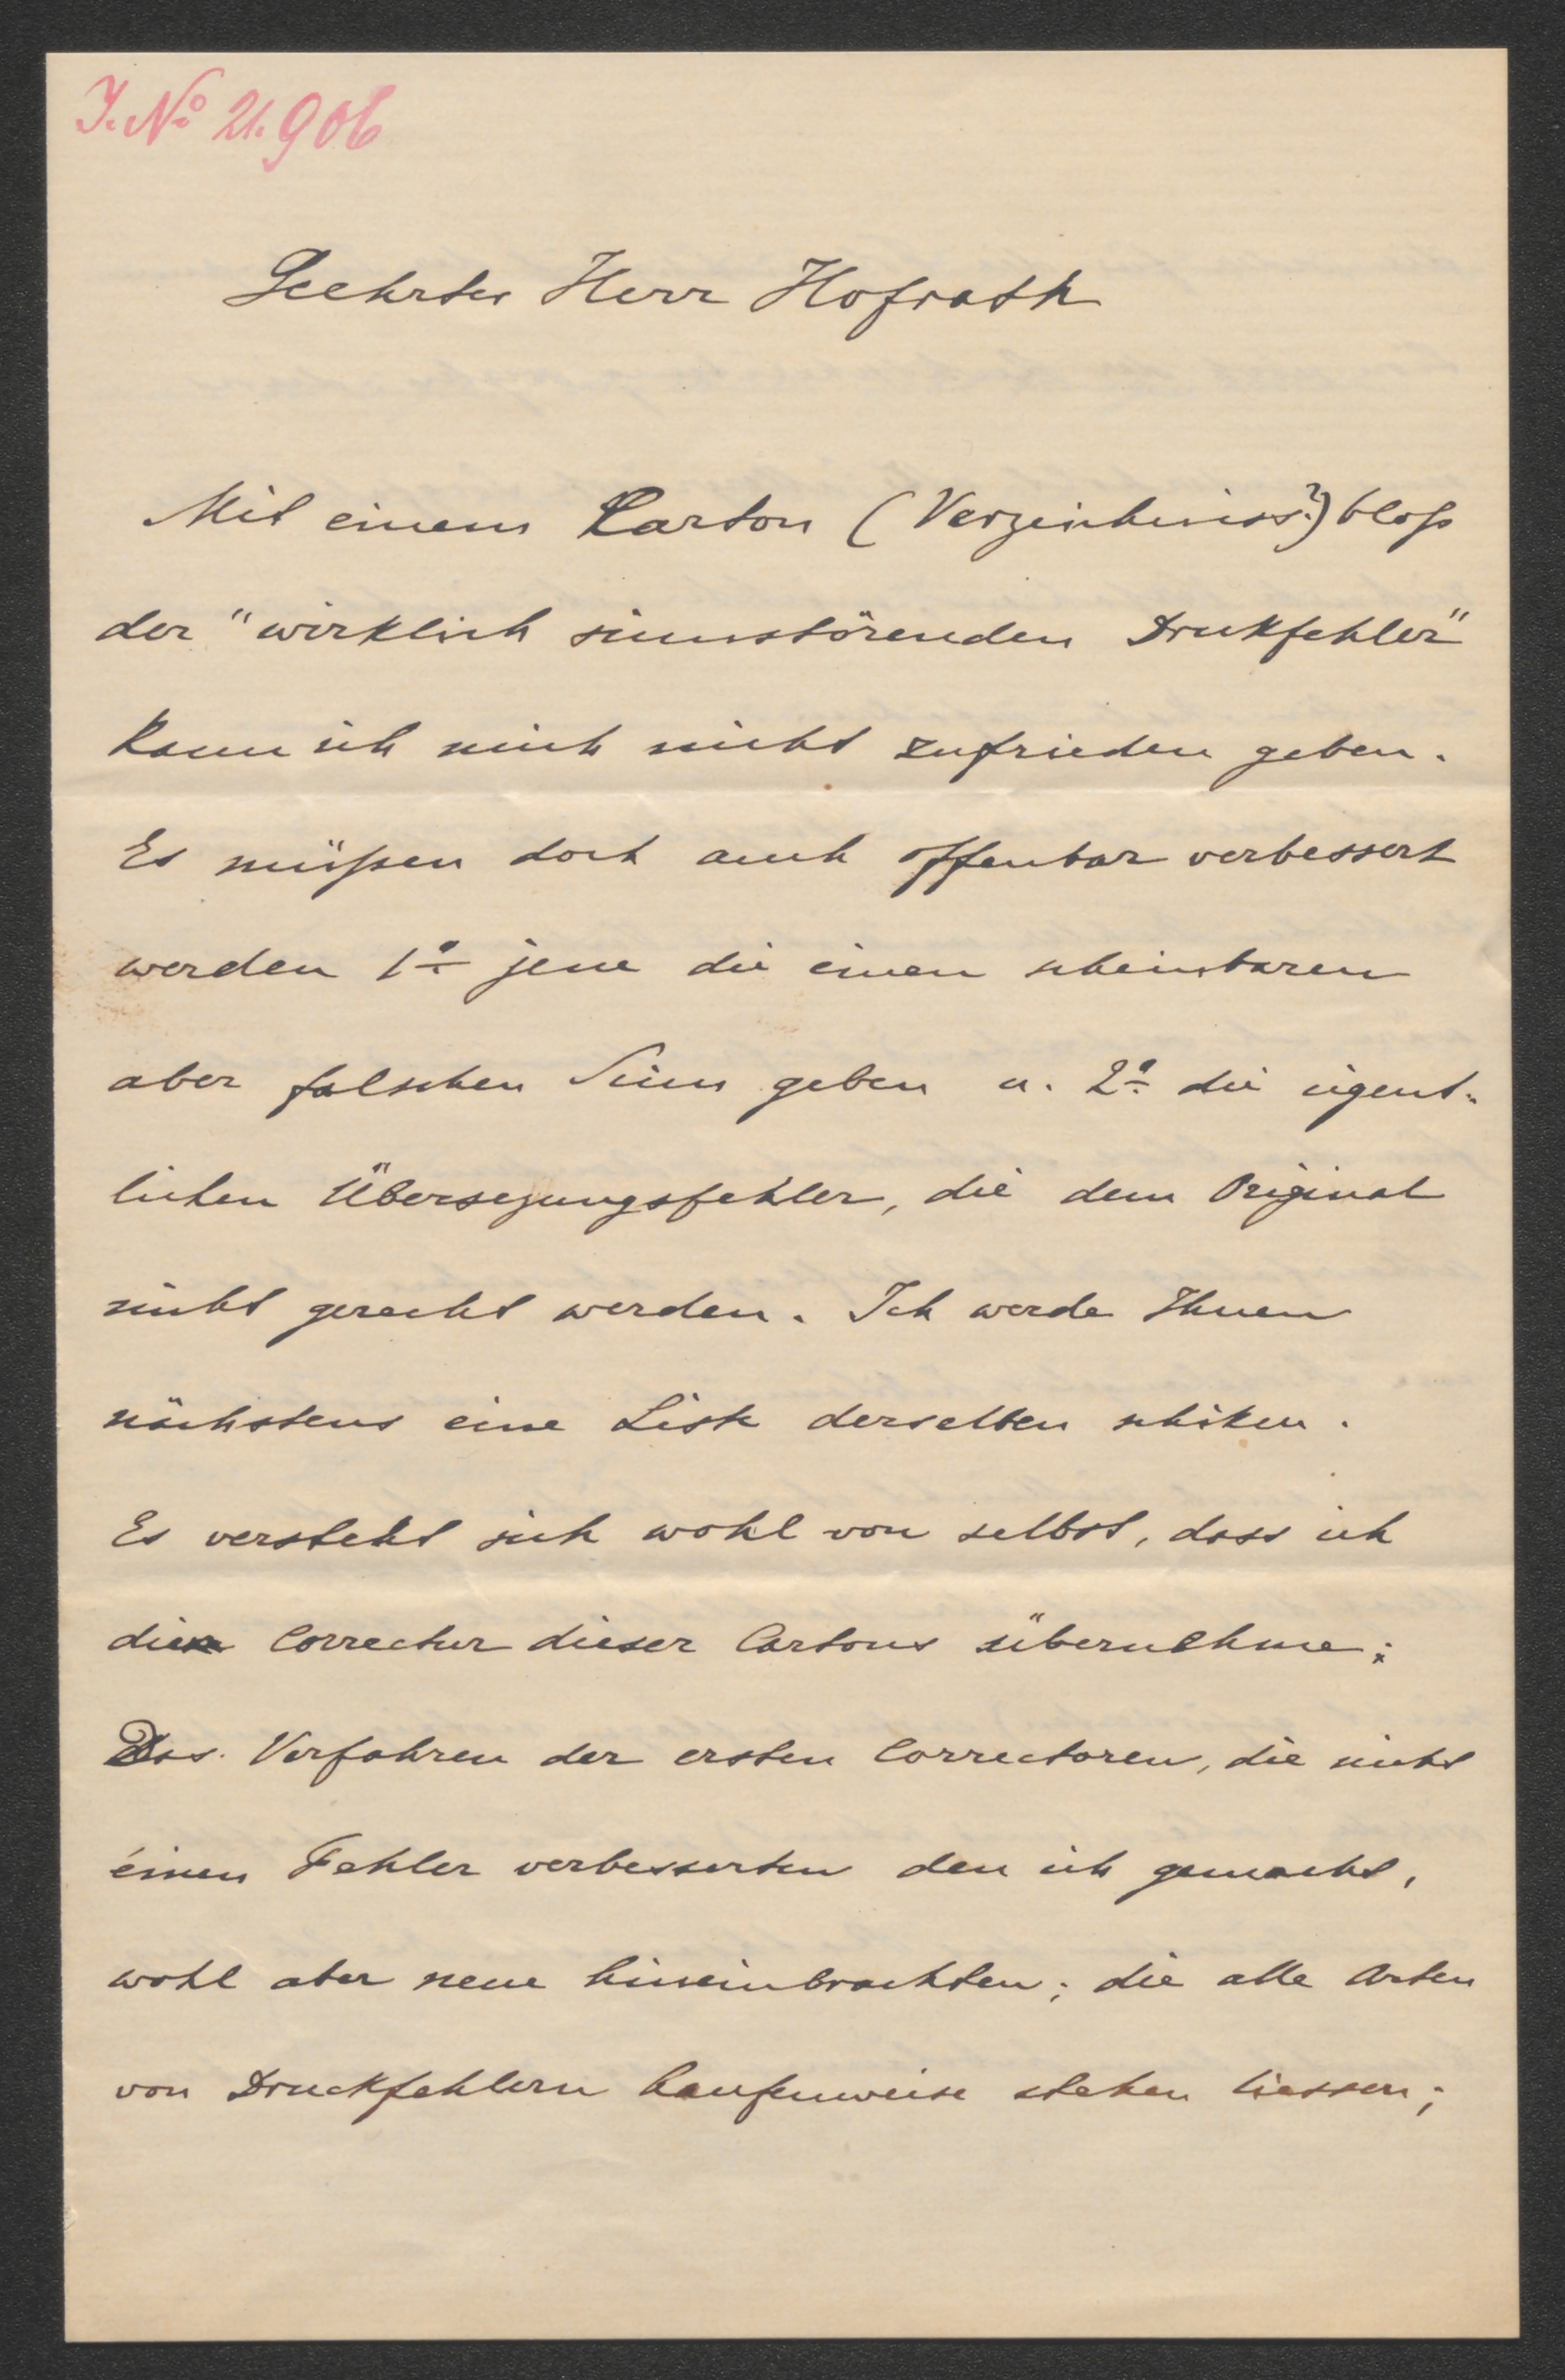 J. No 21.906
Geehrter Herr Hofrath
Mit einem Carton (Verzeichniss?) bloß
der "wirklich sinnstörenden Drukfehler"
kann ich mich nicht zufrieden geben.
Es müßen doch auch offenbar verbessert
werden 1o jene die einen scheinbaren
aber falschen Sinn geben u. 2o die eigent-
lichen Übersezungsfehler, die dem Original
nicht gerecht werden. Ich werde Ihnen
nächstens eine Liste derselben schiken.
Es versteht sich wohl von selbst, dass ich
die Correctur dieser Cartons übernehme;
Das Verfahren der ersten Correctoren, die nicht
einen Fehler verbesserten den ich gemacht,
wohl aber neue hineinbrachten; die alle Arten
von Druckfehlern haufenweise stehen liessen;